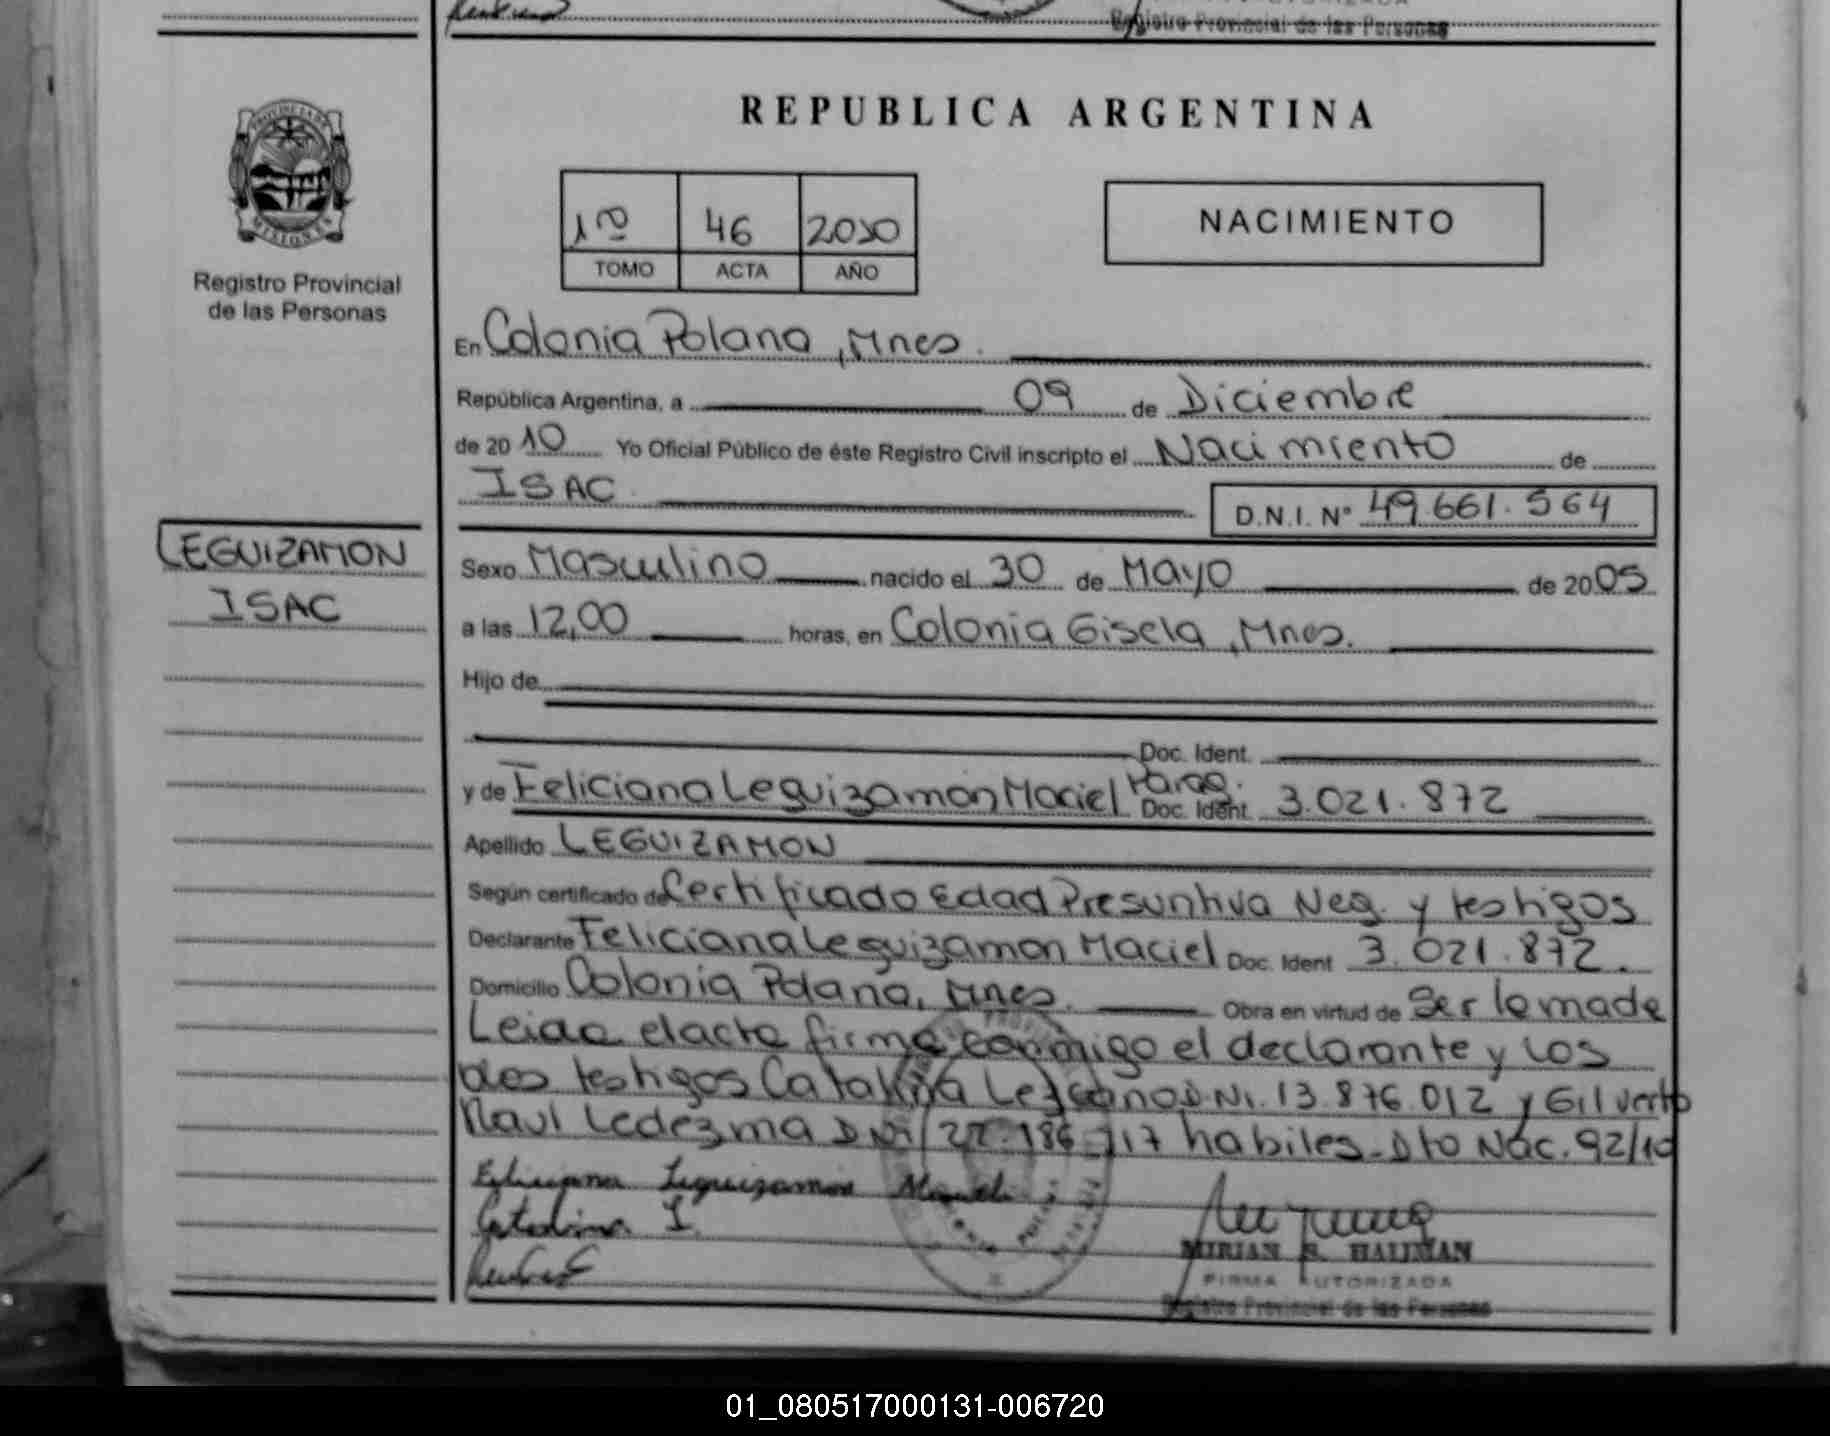 Registro Provincial de las Personas
REPUBLICA ARGENTINA
PROVINCIA DE
MISIONES
Registro Provincial
de las Personas
1º 46 2010
TOMO ACTA AÑO
NACIMIENTO
En Colonia Polana, Mnes.
República Argentina, a 09 de Diciembre
de 2010 Yo Oficial Público de éste Registro Civil inscripto el Nacimiento de
ISAC
D.N.I. Nº 49.661.564
LEGUIZAMON
ISAC
Sexo Masculino nacido el 30 de Mayo de 2005
a las 12,00 horas, en Colonia Gisela, Mnes.
Hijo de
Doc. Ident.
y de Feliciana Leguizamón Maciel Parag. Doc. Ident. 3.021.872
Apellido LEGUIZAMON
Según certificado de Certificado Edad Presuntiva Neg. y testigos
Declarante Feliciana Leguizamon Maciel Doc. Ident 3.021.872.
Domicilio Colonia Polana, Mnes. Obra en virtud de Ser la made
Leida el acta firma conmigo el declarante y los
dos testigos Catalina Lezcano D.Ni. 13.876.012 y Gilverto
Raul Ledezma DNi 22.186.717 habiles. Dto Nac. 92/10
Feliciana Leguizamon
Catalina L.
MIRIAN S. HALLMAN
FIRMA AUTORIZADA
Registro Provincial de las Personas
01_080517000131-006720